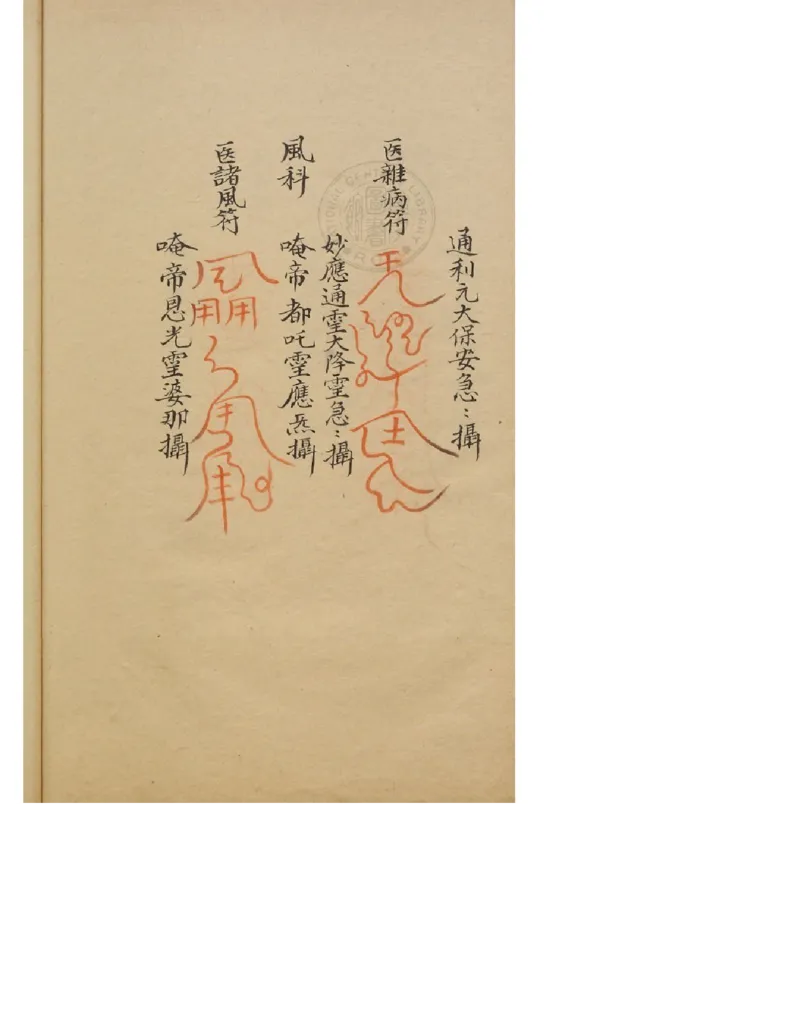 通利元大保安急〻攝
医雜病符
妙應通霊大降霊急〻攝
風科
唵帝都吒霊應炁攝
医諸風符
唵帝恩光霊婆那攝